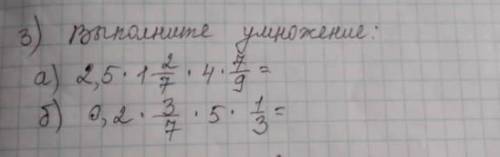 3) Выполните умножение:
а) 2,5 · 1 2/7 · 4 · 7/9 =
б) 0,2 · 3/7 · 5 · 1/3 =